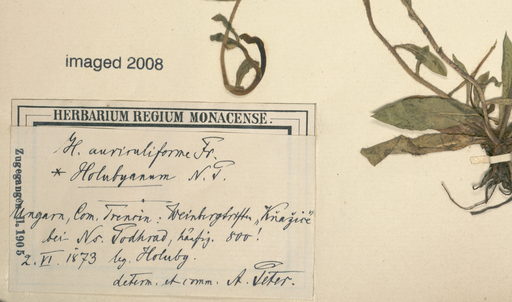 imaged 2008
HERBARIUM REGIUM MONACENSE.
H. auriculiforme Fr.
* Holubyanum N. P.
Ungarn, Com. Trencin: Weinbergtriften „Kňažice"
bei Ns. Podhrad, häufig. 800!
2. VI. 1873 lg. Holuby.
determ. et comm. A. Peter.
Zugegangen 1905